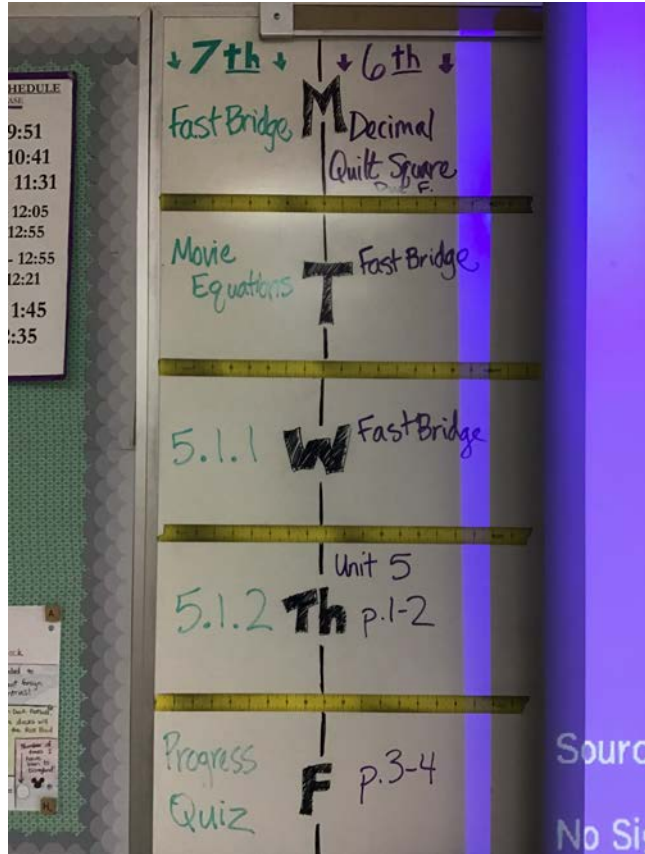 HEDULE
9:51
10:41
11:31
12:05
12:55
- 12:55
12:21
1:45
2:35
↓ 7th ↓
↓ 6th ↓
FastBridge
M
Decimal
Quilt Square
Due F.
Movie
Equations
T
FastBridge
5.1.1
W
FastBridge
5.1.2
Th
Unit 5
p.1-2
Progress
Quiz
F
p.3-4
Number of
Sourc
No Si